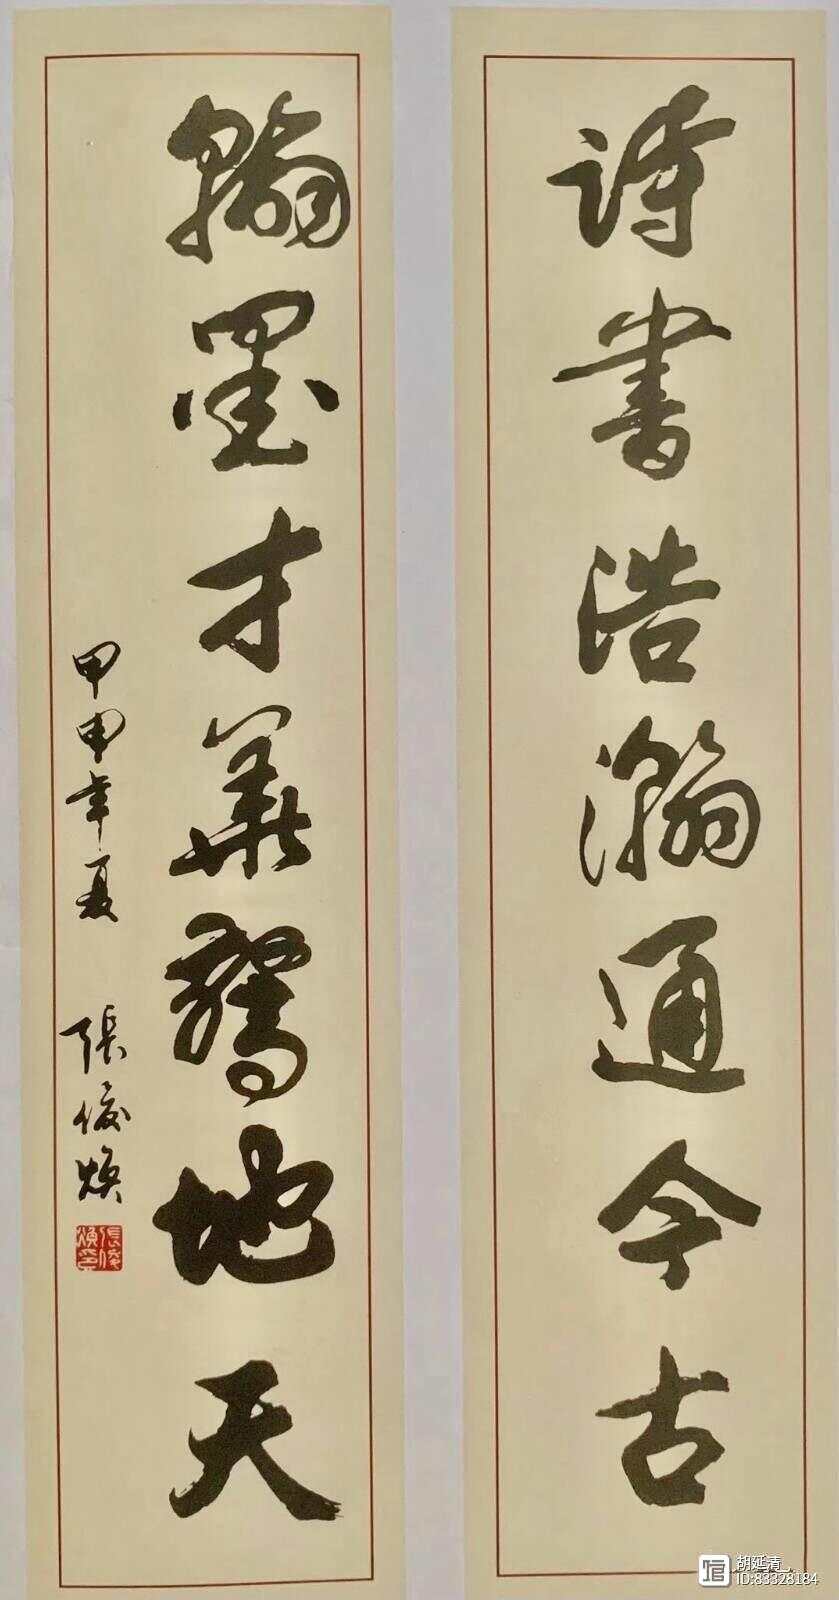 詩書浩瀚通今古
翰墨才華驚地天
甲申年夏 張俊煥
張俊煥印
胡延清
ID:83328184